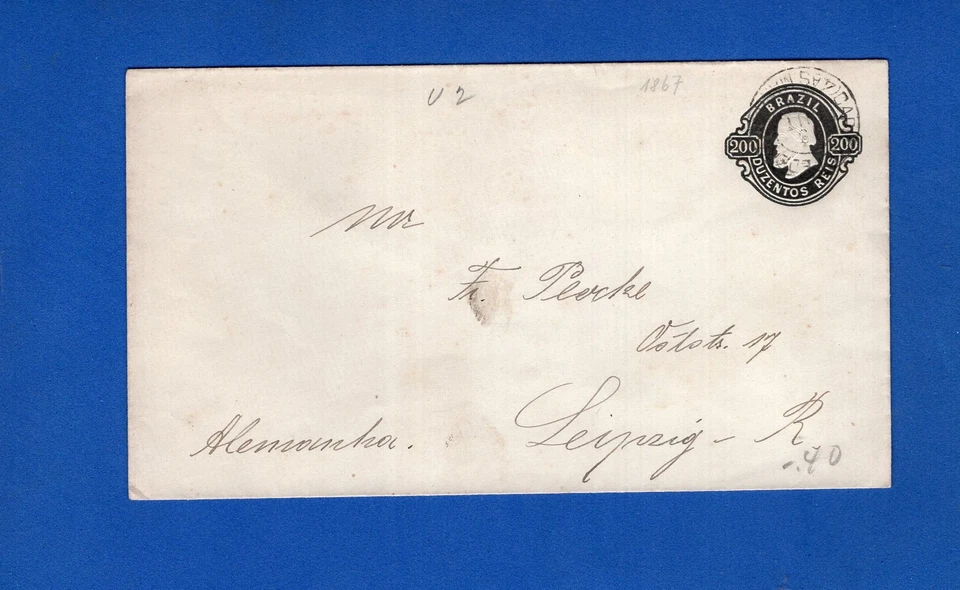 U 2
1867
BRAZIL
200 200
DUZENTOS REIS
Mr
Fr. Plocke
Oststr. 17
Leipzig - R
Alemanha.
-.40